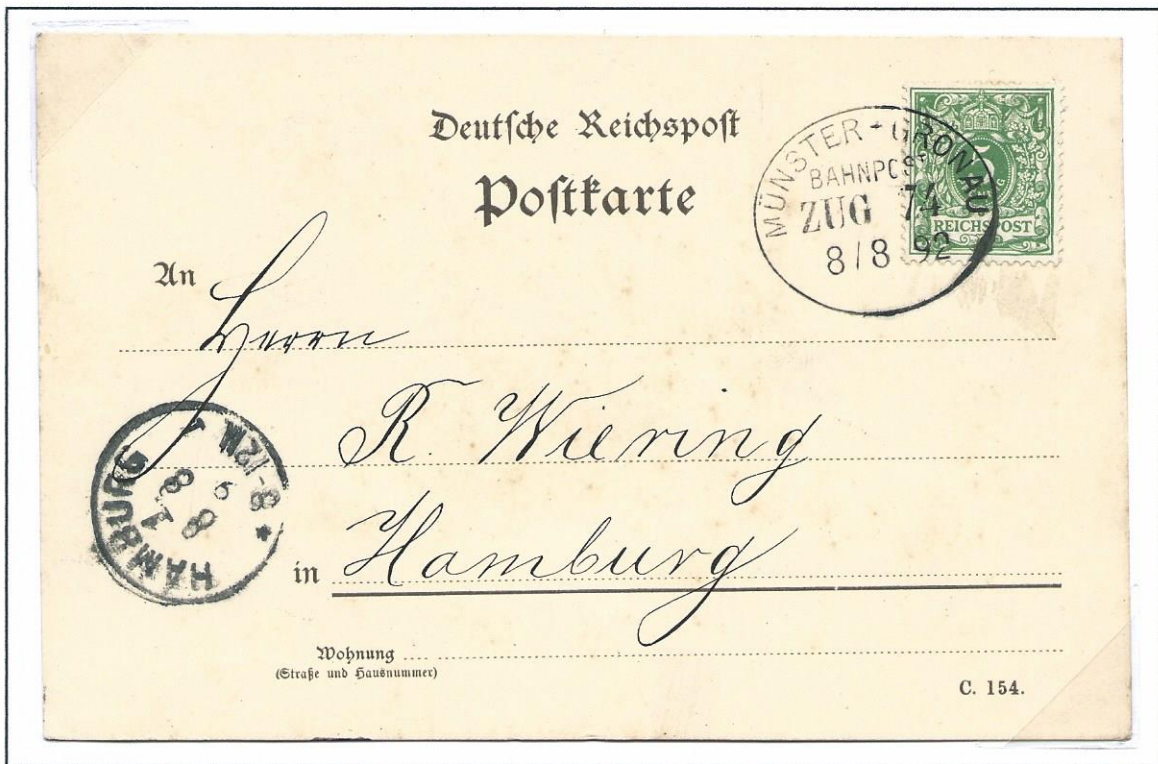 Deutsche Reichspost
Postkarte
MÜNSTER + GRONAU
BAHNPOST
ZUG 74
8/8 92
5
REICHSPOST
An Herrn
R. Wiering
in Hamburg
HAMBURG
8
8
8-12N
Wohnung
(Straße und Hausnummer)
C. 154.